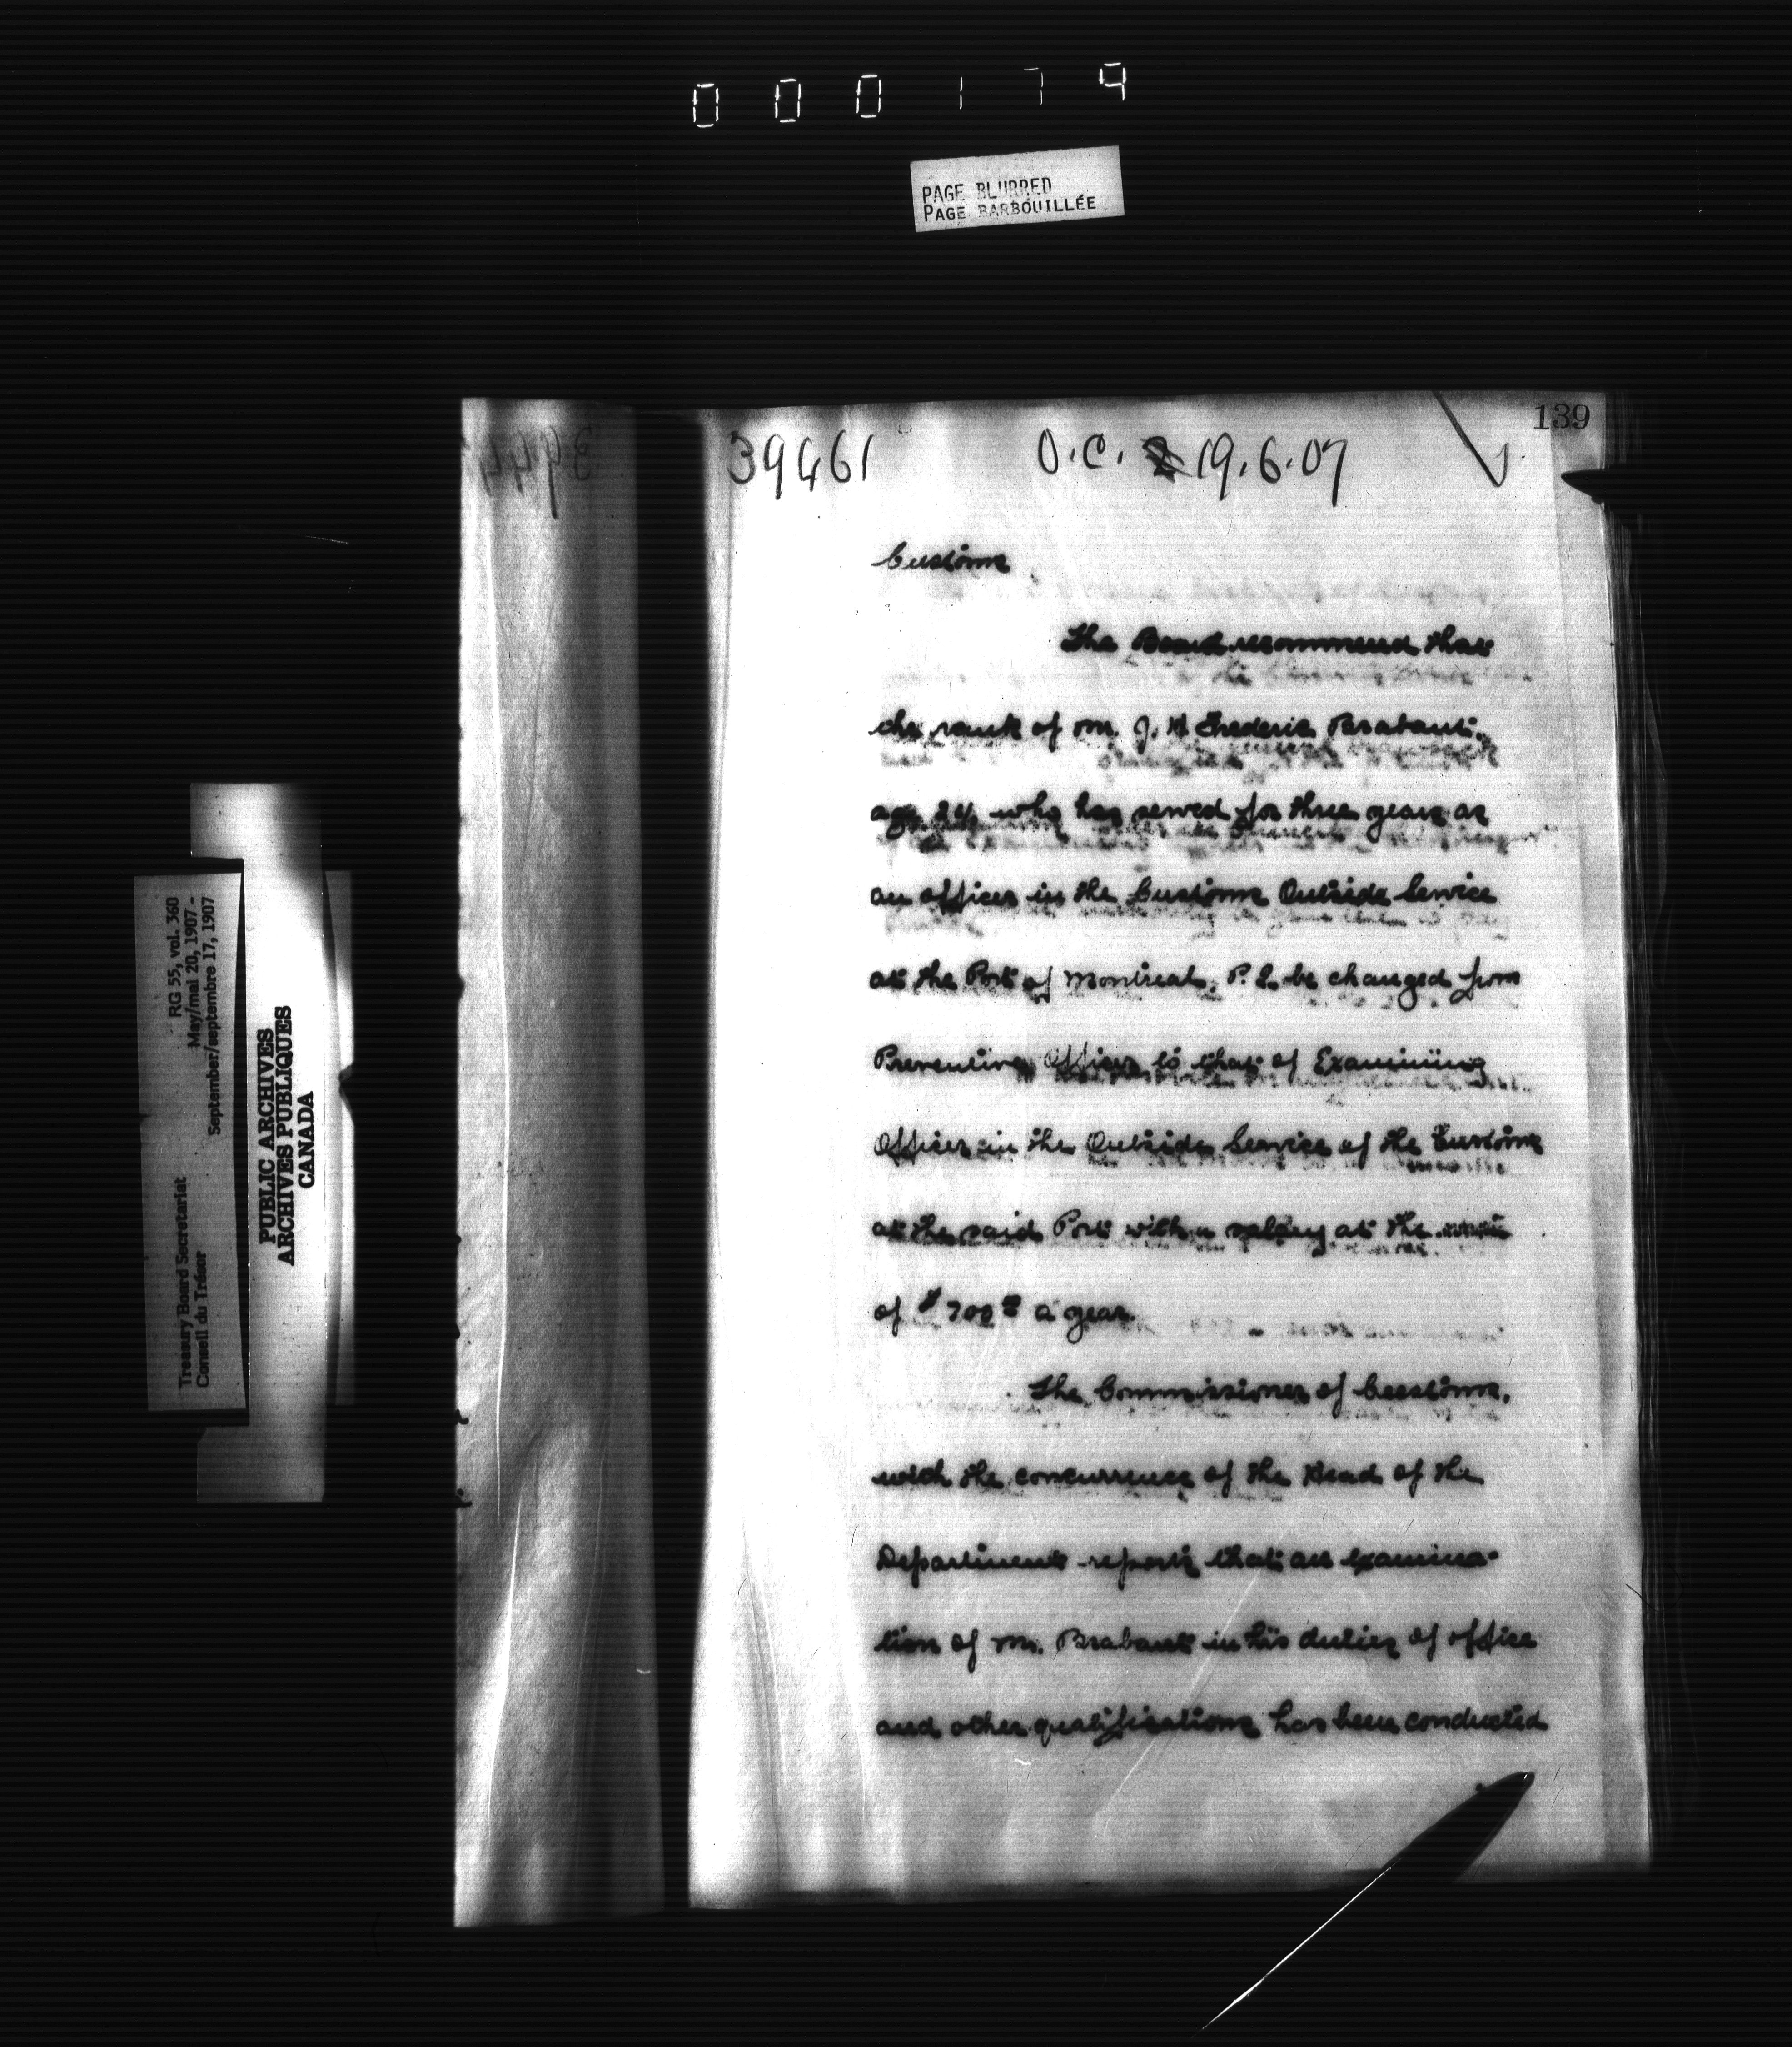 000179
PAGE BLURRED
PAGE BARBOUILLÉE
139
39461 O.C. 19.6.07
Customs
The Board recommend that
the rank of Mr. J. H. Frederic Brabant,
age 24, who has served for three years as
an officer in the Customs Outside Service
at the Port of Montreal, P. Q. be changed from
Preventive Officer to that of Examining
Officer in the Outside Service of the Customs
at the said Port with a salary at the rate
of $700 00 a year.
The Commissioner of Customs,
with the concurrence of the Head of the
Department reports that an examina-
tion of Mr. Brabant in his duties of office
and other qualifications has been conducted
RG 55, vol. 360
May/mai 20, 1907 -
September/septembre 17, 1907
Treasury Board Secretariat
Conseil du Trésor
PUBLIC ARCHIVES
ARCHIVES PUBLIQUES
CANADA